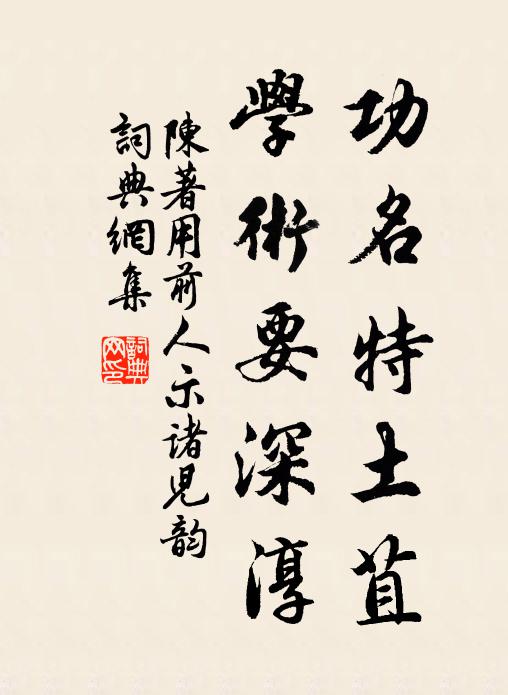 功名特土苴
學術要深淳
陳著用前人示諸兒韵
詞典網集
詞典网印